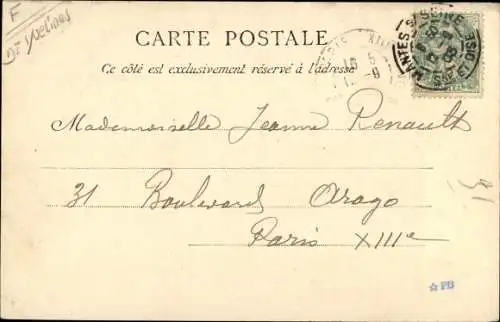 F
Dt Yvelines
CARTE POSTALE
Ce côté est exclusivement réservé à l'adresse
MANTES S/ SEINE
SEINE ET OISE
Mademoiselle Jeanne Renault
31 Boulevard Arago
Paris XIIIe
31
☆ PB